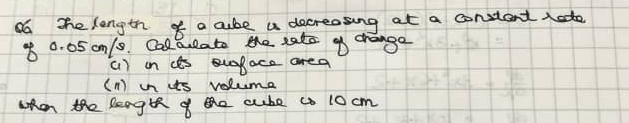 Q6 The length of a cube is decreasing at a constant rate
of 0.05 cm/s. Calculate the rate of change
(i) in its surface area
(ii) in its volume
when the length of the cube is 10 cm